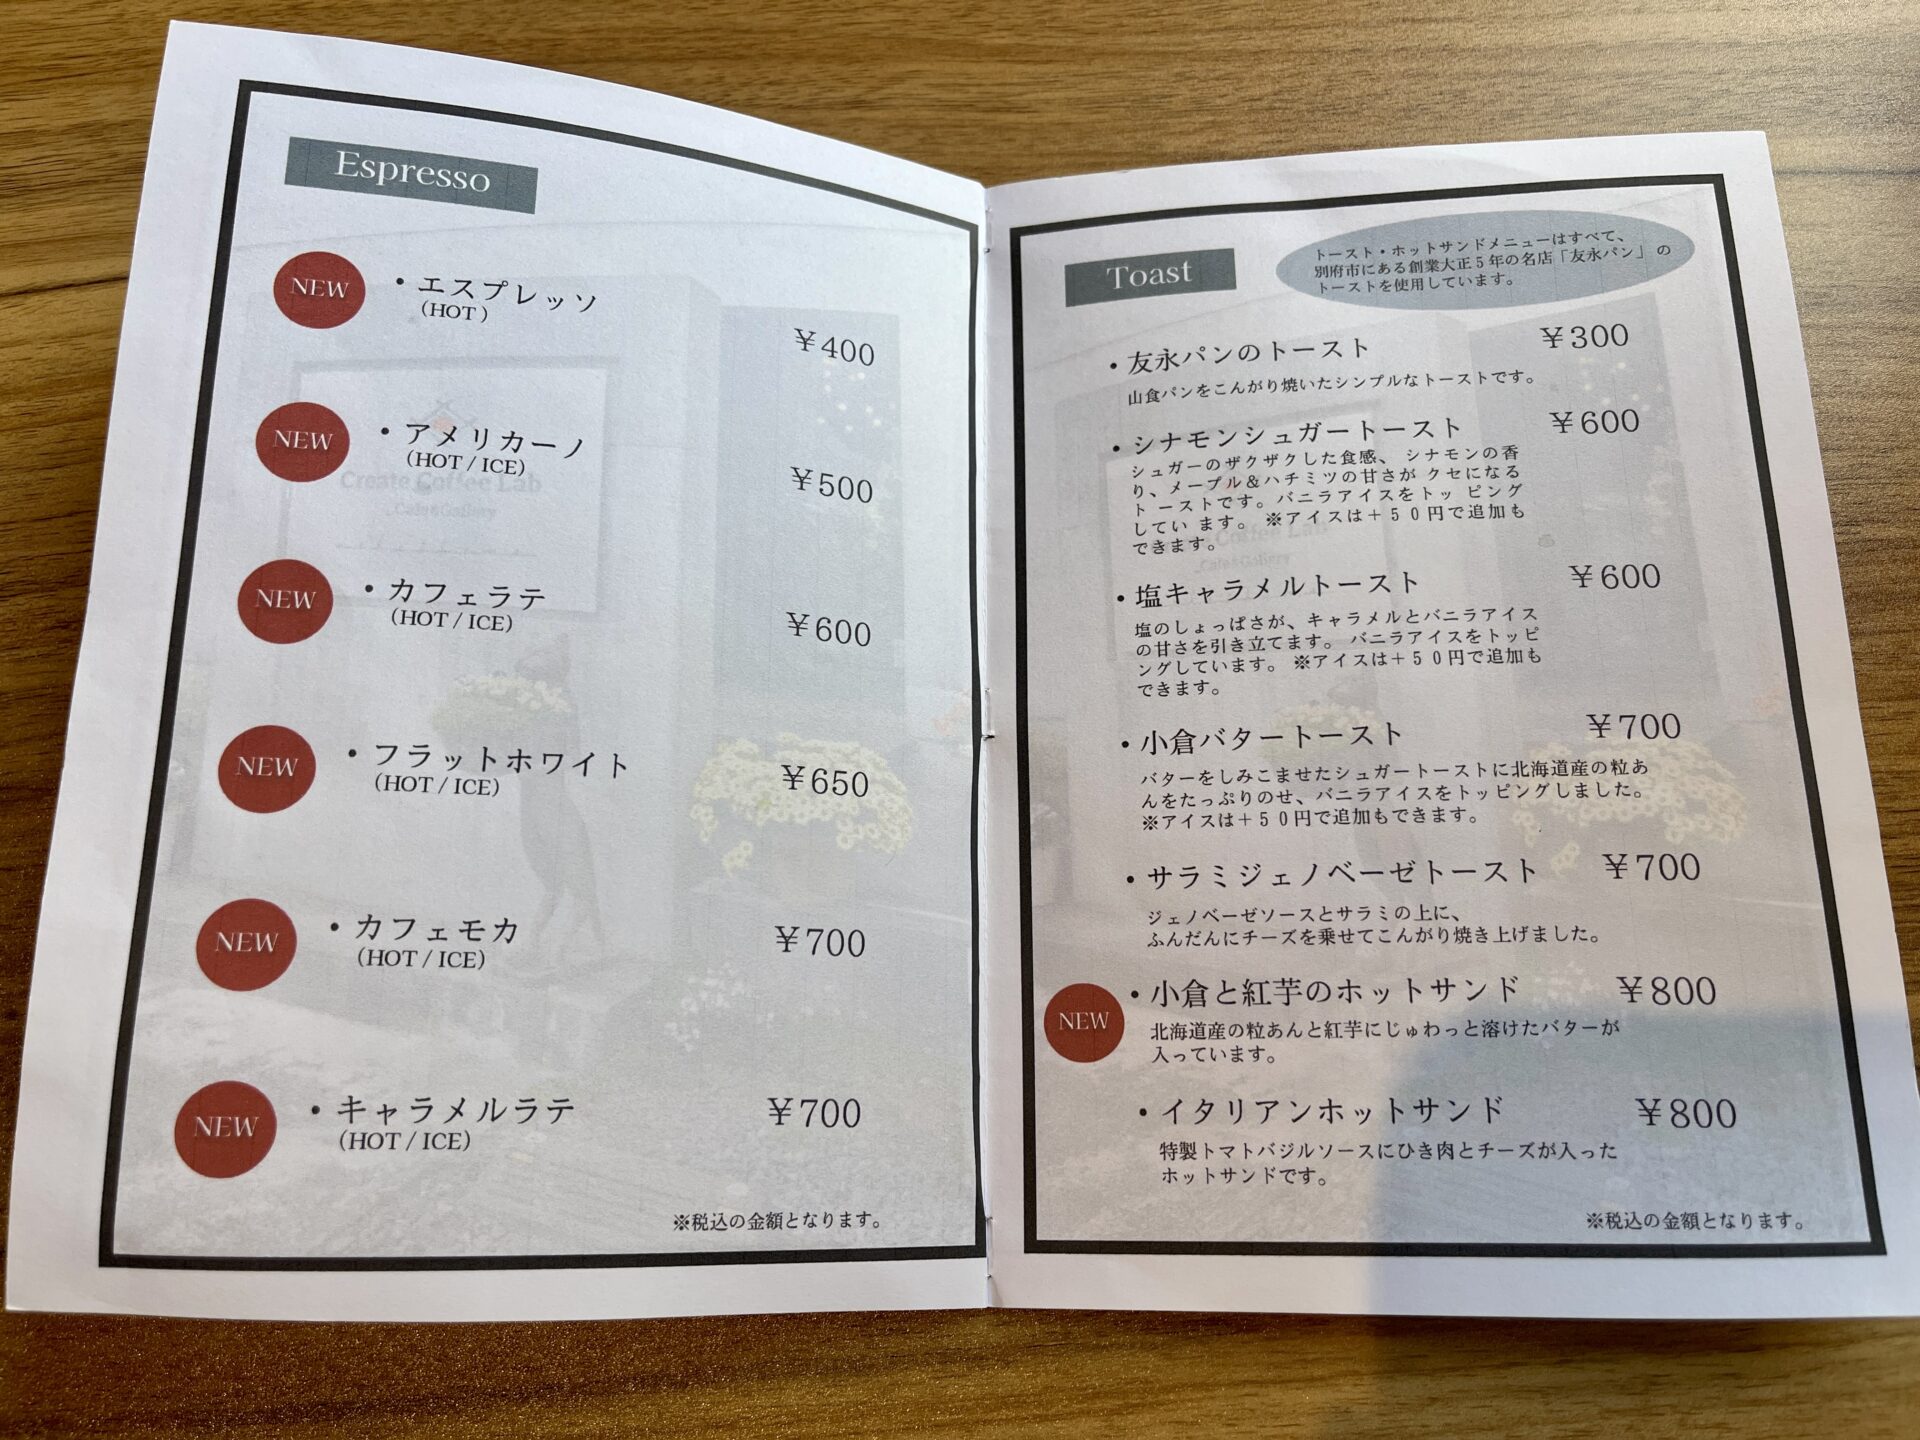 Espresso
NEW
・エスプレッソ
(HOT)
¥400
NEW
・アメリカーノ
(HOT / ICE)
¥500
NEW
・カフェラテ
(HOT / ICE)
¥600
NEW
・フラットホワイト
(HOT / ICE)
¥650
NEW
・カフェモカ
(HOT / ICE)
¥700
NEW
・キャラメルラテ
(HOT / ICE)
¥700
※税込の金額となります。
Create Coffee Lab
Cafe&Gallery
Toast
トースト・ホットサンドメニューはすべて、
別府市にある創業大正5年の名店「友永パン」の
トーストを使用しています。
・友永パンのトースト ¥300
山食パンをこんがり焼いたシンプルなトーストです。
・シナモンシュガートースト ¥600
シュガーのザクザクした食感、 シナモンの香
り、メープル＆ハチミツの甘さが クセになる
ト ーストです。バニラアイスをトッ ピング
してい ます。 ※アイスは＋５０円で追加も
できます。
・塩キャラメルトースト ¥600
塩のしょっぱさが、キャラメルとバニラアイス
の甘さを引き立てます。 バニラアイスをトッピ
ングしています。 ※アイスは＋５０円で追加も
できます。
・小倉バタートースト ¥700
バターをしみこませたシュガートーストに北海道産の粒あ
んをたっぷりのせ、バニラアイスをトッピングしました。
※アイスは＋５０円で追加もできます。
・サラミジェノベーゼトースト ¥700
ジェノベーゼソースとサラミの上に、
ふんだんにチーズを乗せてこんがり焼き上げました。
NEW
・小倉と紅芋のホットサンド ¥800
北海道産の粒あんと紅芋にじゅわっと溶けたバターが
入っています。
・イタリアンホットサンド ¥800
特製トマトバジルソースにひき肉とチーズが入った
ホットサンドです。
※税込の金額となります。
Coffee Lab
Cafe&Gallery